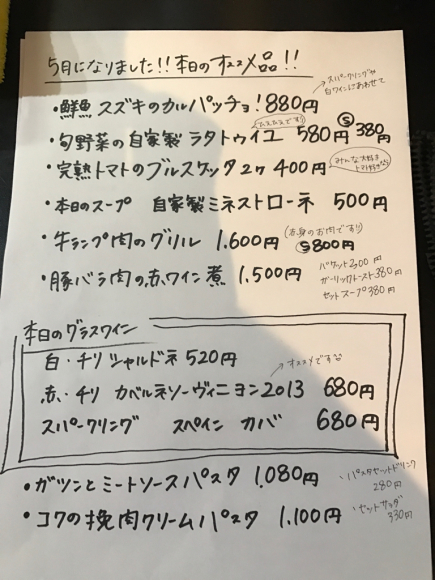 5月になりました!!本日のオススメ品!!
スパークリングや
白ワインにあわせて
・鮮魚 スズキのカルパッチョ!880円
・旬野菜の自家製 ラタトゥイユ 580円 Ⓢ380円
・完熟トマトのブルスケッタ2ヶ 400円
みんな大好き
トマト好きなら
・本日のスープ 自家製ミネストローネ 500円
・牛ランプ肉のグリル 1.600円 Ⓢ800円
(赤身のお肉です!)
・豚バラ肉の赤ワイン煮 1.500円
バケット200円
ガーリックトースト380円
セットスープ380円
本日のグラスワイン
白・チリ シャルドネ 520円
オススメです
赤・チリ カベルネソーヴィニヨン2013 680円
スパークリング スペイン カバ 680円
・ガツンとミートソースパスタ 1.080円
パスタセットドリンク
280円
・コクの挽肉クリームパスタ 1.100円
セットサラダ
330円